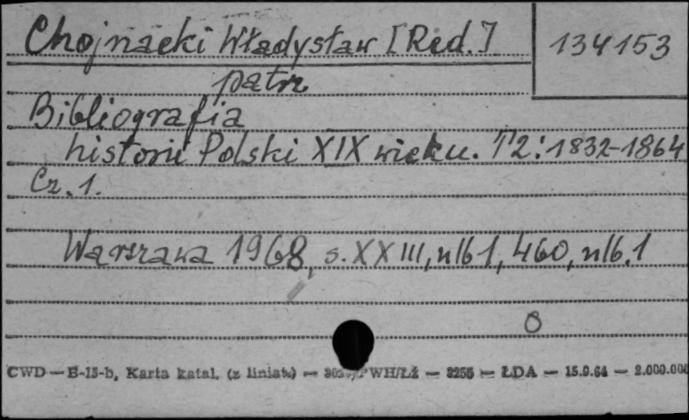 Chojnacki Władysław [Red.] 134153
patrz
Bibliografia
historii Polski XIX wieku. T2: 1832-1864
Cz. 1.
Warszawa 1968, s. XXIII, nlb 1, 460, nlb. 1
8
CWD — B-15-b, Karta katal. (z liniat.) — PWH/Łż — 3255 — ŁDA — 15.9.64 — 2.000.000